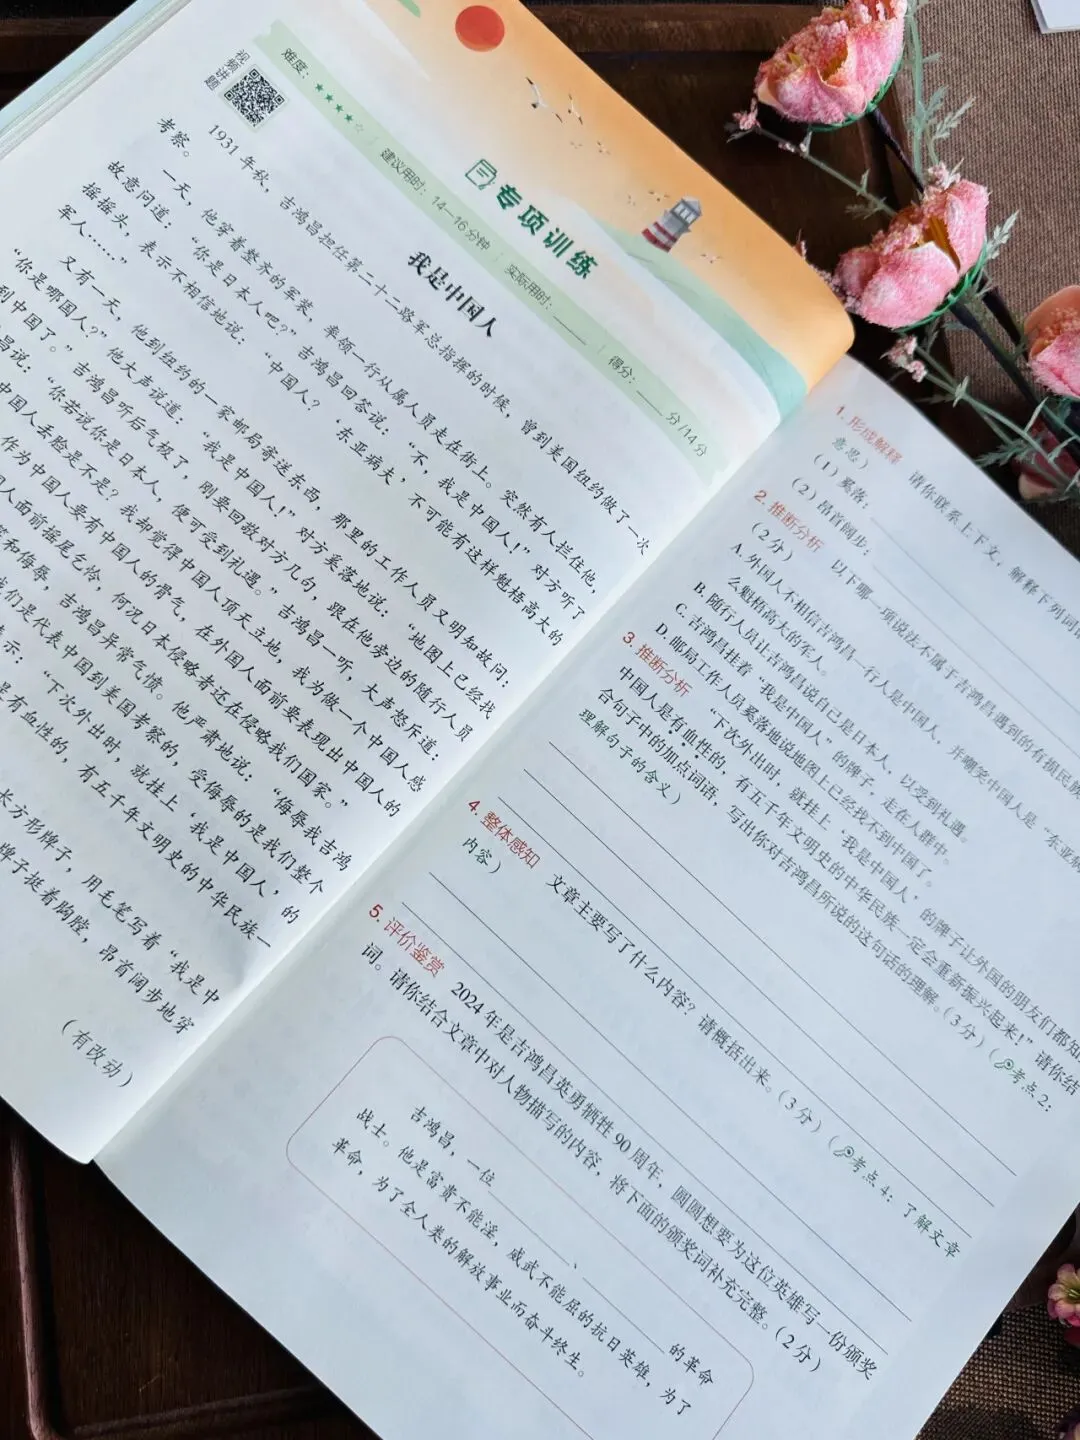 视频讲题
难度：★★★★☆ | 建议用时：14—16分钟 | 实际用时：____ | 得分：____分/14分
专项训练
我是中国人
1931年秋，吉鸿昌担任第二十二路军总指挥的时候，曾到美国纽约做了一次
考察。
一天，他穿着整齐的军装，率领一行从属人员走在街上。突然有人拦住他，
故意问道：“你是日本人吧？”吉鸿昌回答说：“不，我是中国人！”对方听了
摇摇头，表示不相信地说：“中国人？‘东亚病夫’，不可能有这样魁梧高大的
军人……”
又有一天，他到纽约的一家邮局寄送东西，那里的工作人员又明知故问：
“你是哪国人？”他大声说道：“我是中国人！”对方奚落地说：“地图上已经找
到中国了。”吉鸿昌听后气极了，刚要回敬对方几句，跟在他旁边的随行人员
昌说：“你若说你是日本人，便可受到礼遇。”吉鸿昌一听，大声怒斥道：
中国人丢脸是不是？我却觉得中国人顶天立地，我为做一个中国人感
作为中国人要有中国人的骨气，在外国人面前要表现出中国人的
人面前摇尾乞怜，何况日本侵略者还在侵略我们国家。”
和侮辱，吉鸿昌异常气愤。他严肃地说：“侮辱我吉鸿
我们是代表中国到美国考察的，受侮辱的是我们整个
表示：“下次外出时，就挂上‘我是中国人’的
是有血性的，有五千年文明史的中华民族一
长方形牌子，用毛笔写着“我是中
牌子挺着胸膛，昂首阔步地穿
（有改动）
1. 形成解释 请你联系上下文，解释下列词语
意思）
（1）奚落：
（2）昂首阔步：
2. 推断分析 以下哪一项说法不属于吉鸿昌遇到的有损民族
（2分）
A. 外国人不相信吉鸿昌一行人是中国人，并嘲笑中国人是“东亚病
么魁梧高大的军人。
B. 随行人员让吉鸿昌说自己是日本人，以受到礼遇。
C. 吉鸿昌挂着“我是中国人”的牌子，走在人群中。
D. 邮局工作人员奚落地说地图上已经找不到中国了。
3. 推断分析 “下次外出时，就挂上‘我是中国人’的牌子让外国的朋友们都知
中国人是有血性的，有五千年文明史的中华民族一定会重新振兴起来！”请你结
合句子中的加点词语，写出你对吉鸿昌所说的这句话的理解。（3分）（考点2：
理解句子的含义）
4. 整体感知 文章主要写了什么内容？请概括出来。（3分）（考点4：了解文章
内容）
5. 评价鉴赏 2024年是吉鸿昌英勇牺牲90周年，圆圆想要为这位英雄写一份颁奖
词。请你结合文章中对人物描写的内容，将下面的颁奖词补充完整。（2分）
吉鸿昌，一位________、________的革命
战士。他是富贵不能淫，威武不能屈的抗日英雄，为了
革命，为了全人类的解放事业而奋斗终生。